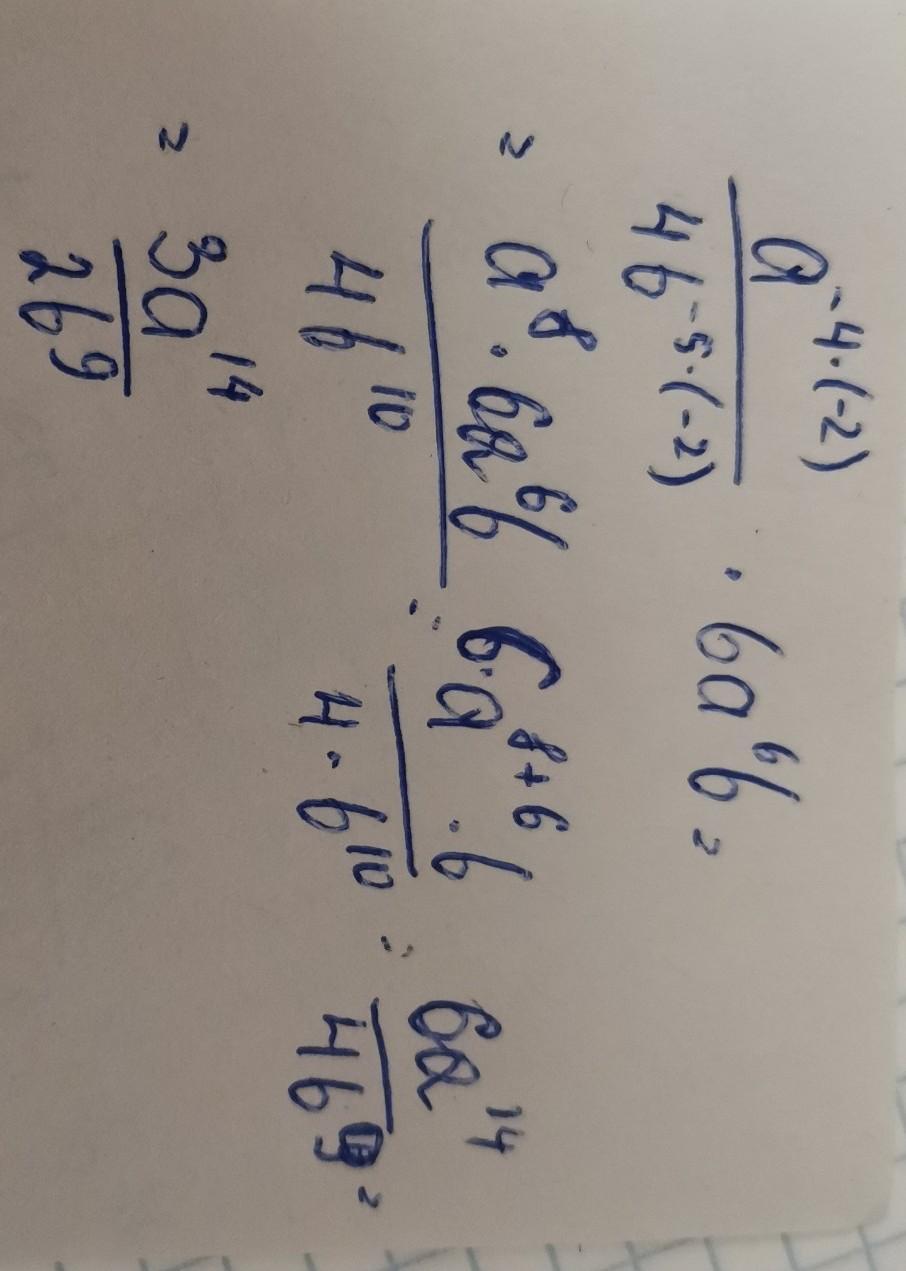 a^{-4·(-2)} / 4b^{-5·(-2)} · 6a^6 b =
= a^8 · 6a^6 b / 4b^{10} = 6·a^{8+6} · b / 4·b^{10} = 6a^{14} / 4b^9 =
= 3a^{14} / 2b^9